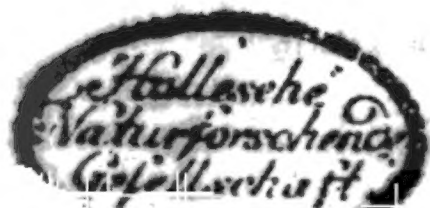 Hallesche
Naturforschende
Gesellschaft